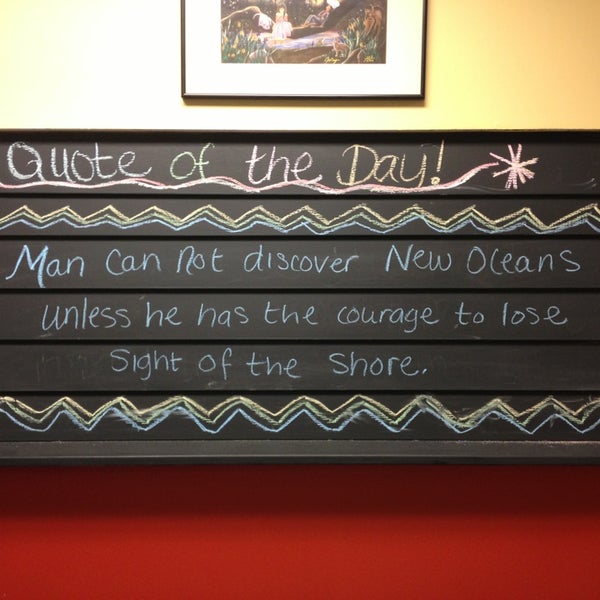 Quote of the Day!
Man Can Not discover New Oceans
unless he has the courage to lose
Sight of the Shore.